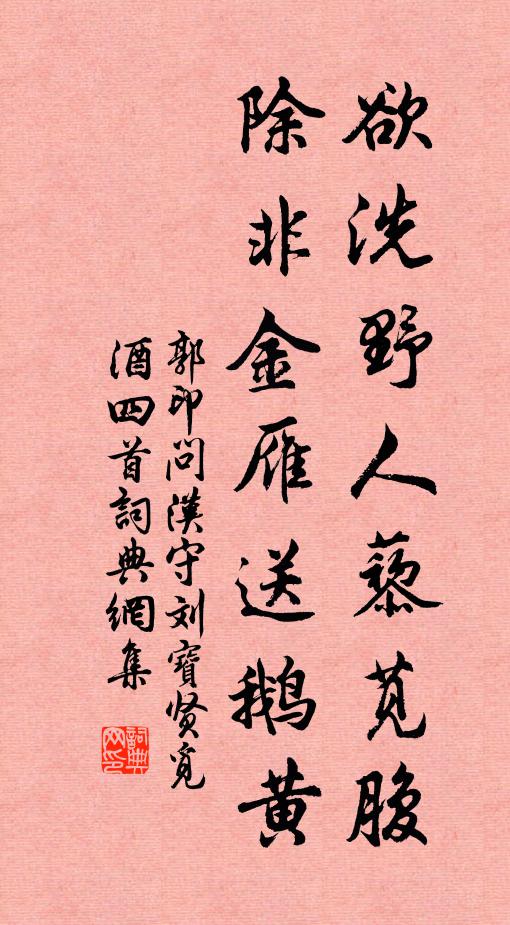 欲洗野人藜苋腹
除非金雁送鹅黄
郭印问漢守刘寶贤覓
酒四首詞典網集
詞典网印